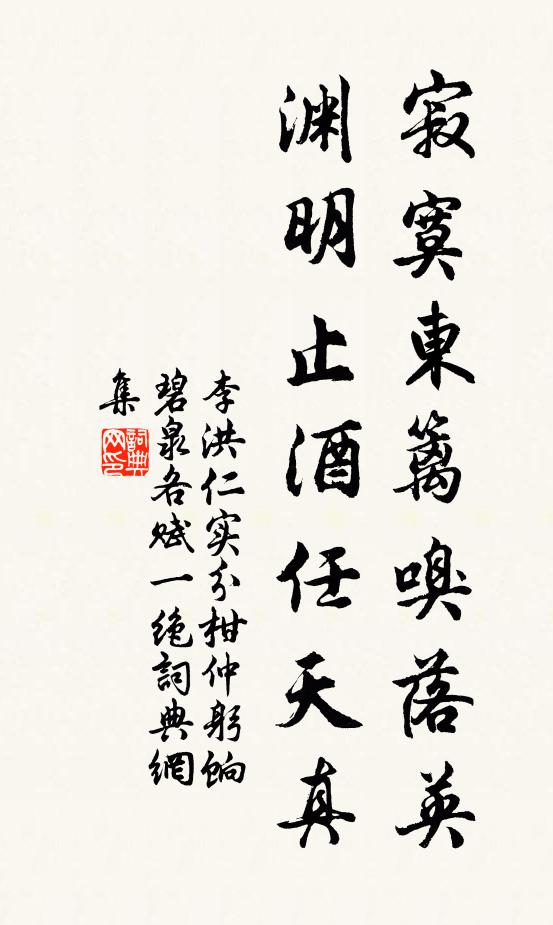 寂寞東籬嗅落英
淵明止酒任天真
李洪仁实分柑仲躬餉
碧泉各赋一绝詞典網
集
詞典网印